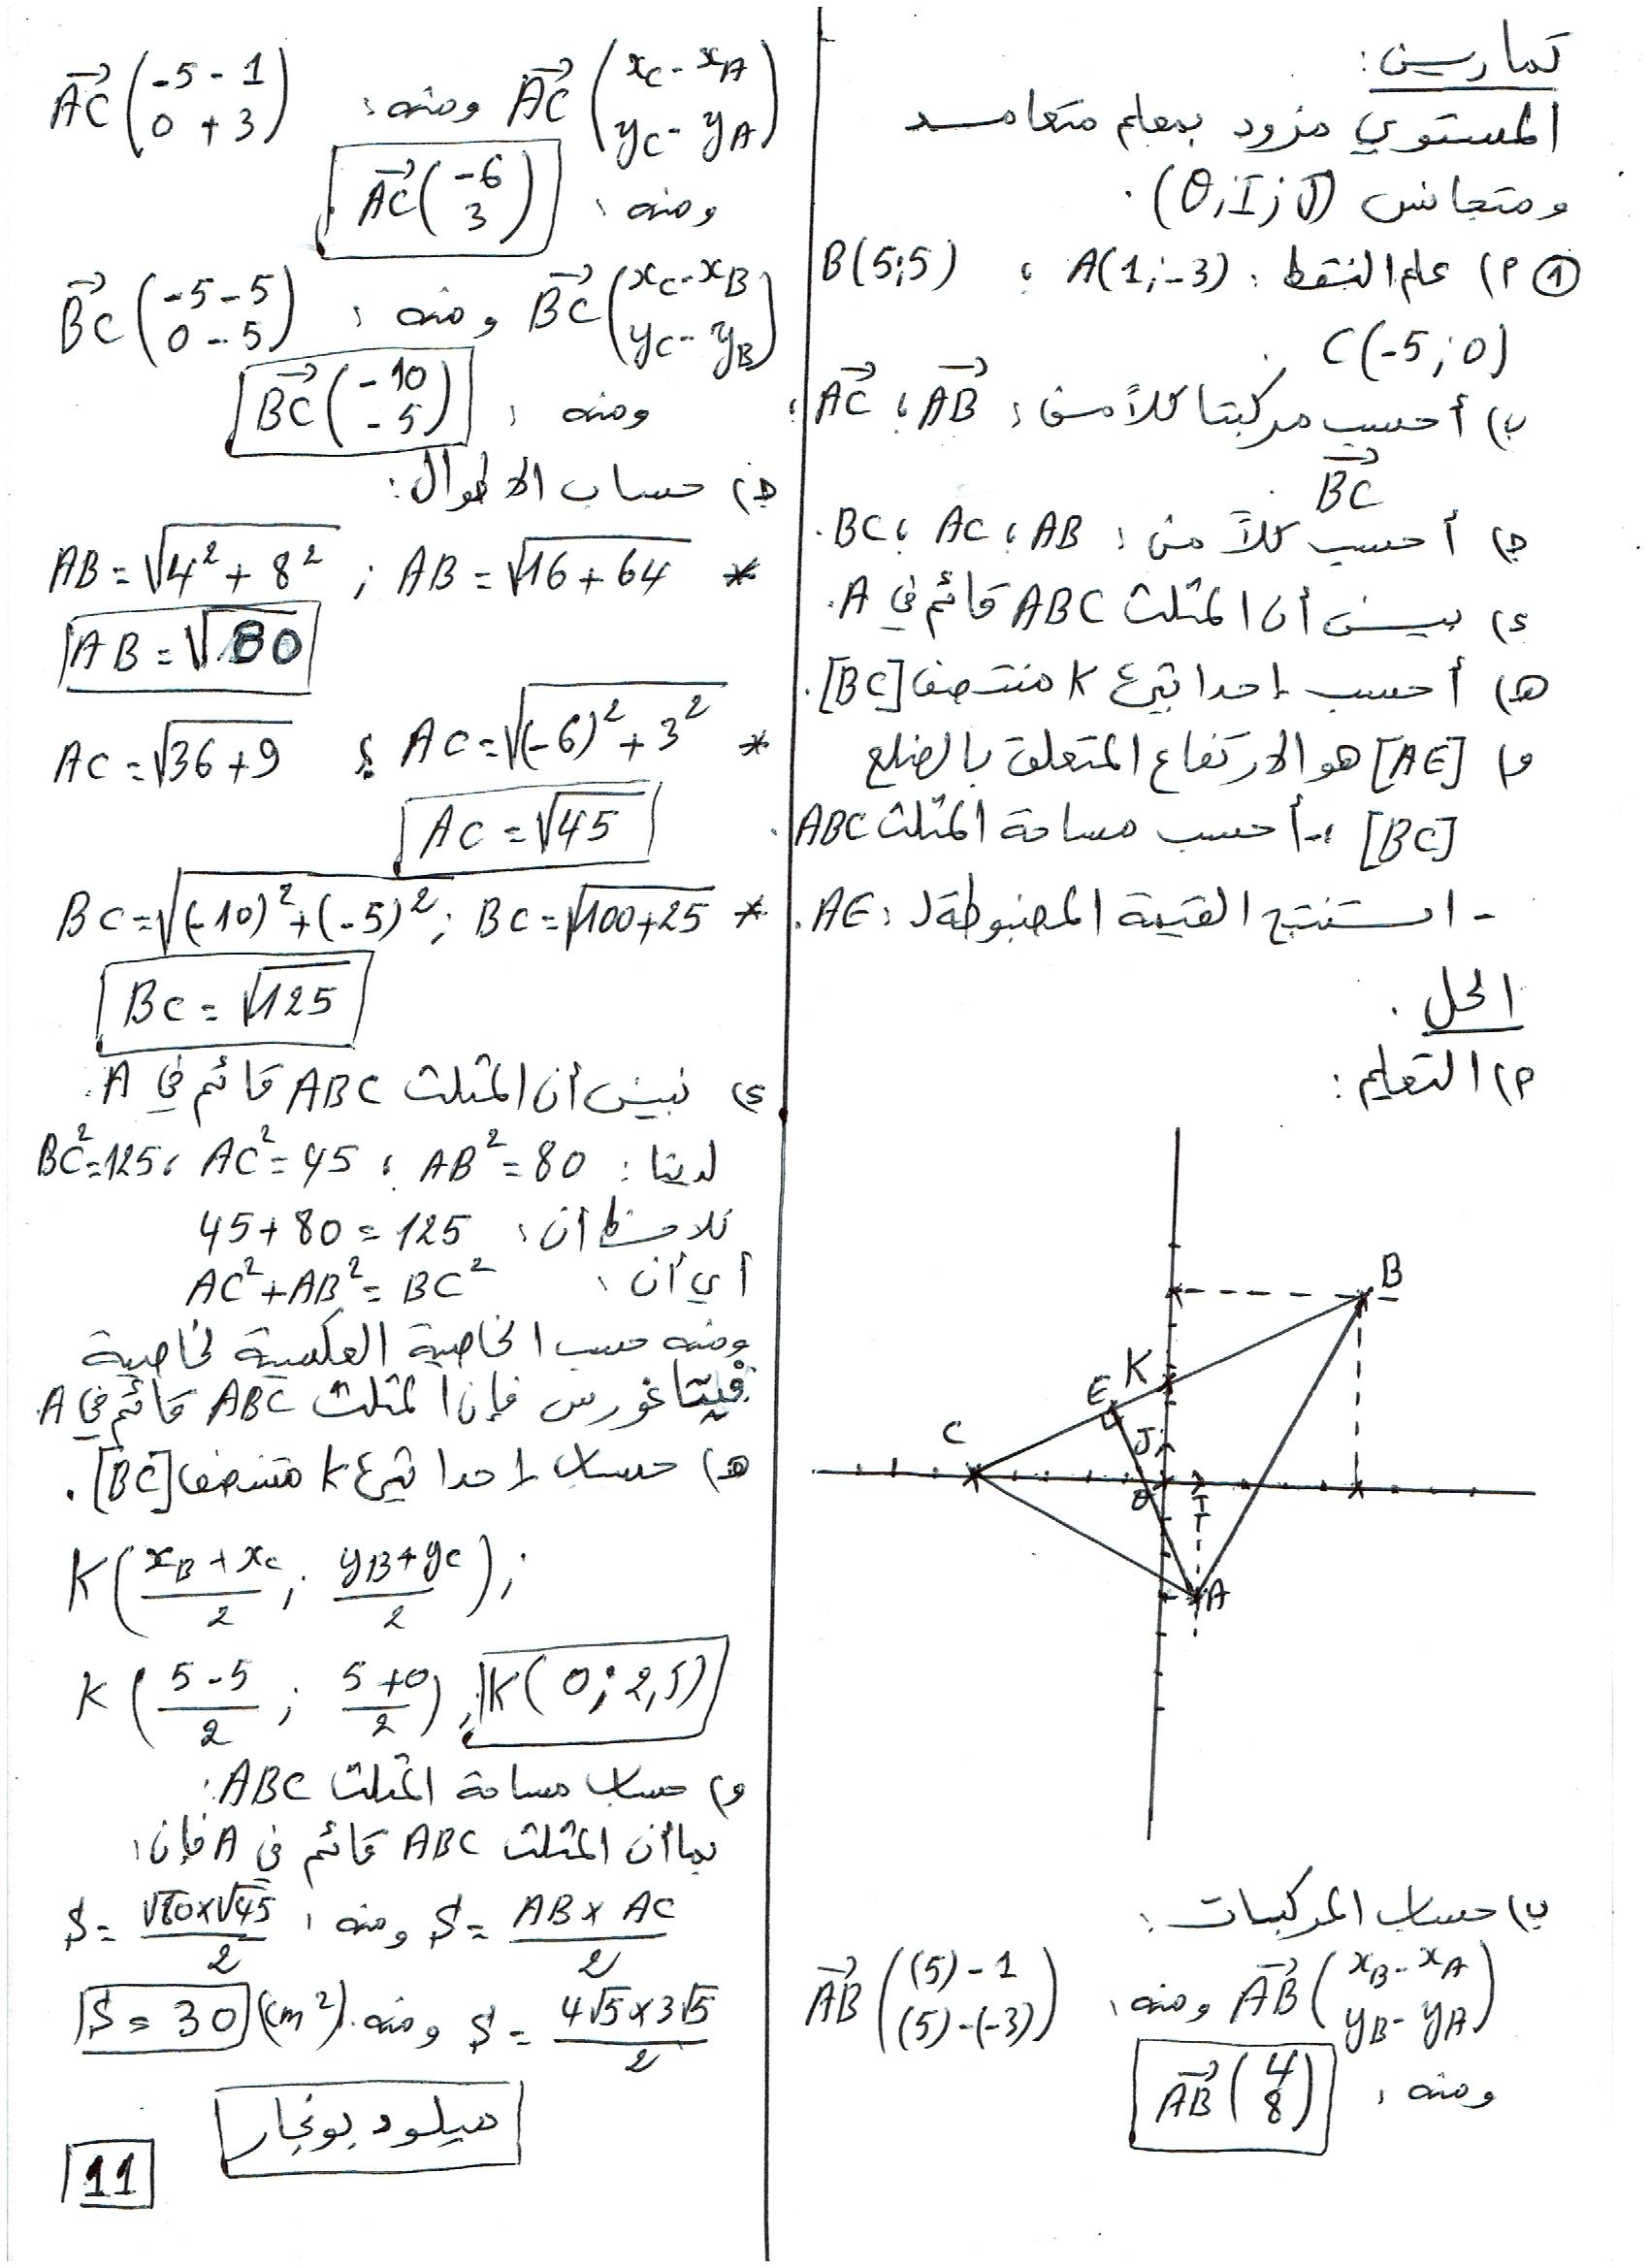 تمارين:
المستوي مزود بمعلم متعامد
ومتجانس (O;I;J).
① م) علم النقط: A(1;-3) ؛ B(5;5)
C(-5;0)
ب) أحسب مركبتا كلاً من: AB ؛ AC ؛
BC
ج) أحسب كلاً من: AB ؛ AC ؛ BC.
د) بين أن المثلث ABC قائم في A.
ه) أحسب إحداثيي K منتصف [BC].
و) [AE] هو الارتفاع المتعلق بالضلع
[BC] ؛ - أحسب مساحة المثلث ABC.
- استنتج القيمة المضبوطة لـ: AE.
الحل.
م) التعليم:
B
K
E
C
J
O
I
A
ب) حساب المركبات:
AB (x_B - x_A ; y_B - y_A) ومنه: AB ((5) - 1 ; (5) - (-3))
ومنه: AB (4 ; 8)
AC (x_C - x_A ; y_C - y_A) ومنه: AC (-5 - 1 ; 0 + 3)
ومنه: AC (-6 ; 3)
BC (x_C - x_B ; y_C - y_B) ومنه: BC (-5 - 5 ; 0 - 5)
ومنه: BC (-10 ; -5)
ج) حساب الاطوال:
* AB = √4² + 8² ; AB = √16 + 64
AB = √80
* AC = √(-6)² + 3² ; AC = √36 + 9
AC = √45
* BC = √(-10)² + (-5)² ; BC = √100 + 25
BC = √125
د) نبين أن المثلث ABC قائم في A.
لدينا: AB² = 80 ؛ AC² = 45 ؛ BC² = 125
نلاحظ ان: 45 + 80 = 125
أي أن: AC² + AB² = BC²
ومنه حسب الخاصية العكسية لخاصية
فيتاغورس فإن المثلث ABC قائم في A.
ه) حساب إحداثيي K منتصف [BC].
K (x_B + x_C / 2 ; y_B + y_C / 2) ;
K (5 - 5 / 2 ; 5 + 0 / 2) ; K(0 ; 2,5)
و) حساب مساحة المثلث ABC:
بما أن المثلث ABC قائم في A فإن:
S = AB × AC / 2 ومنه: S = √80 × √45 / 2
S = 4√5 × 3√5 / 2 ومنه. S = 30 (cm²)
ميلود بونجار
11